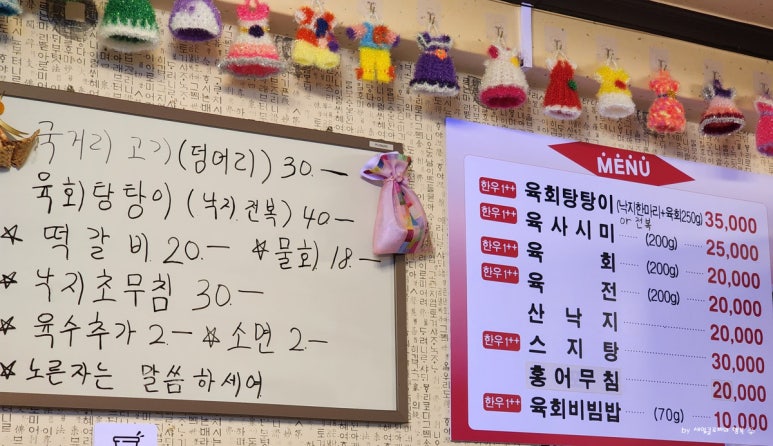 국거리 고기(덩어리) 30.—
육회탕탕이 (낙지.전복) 40—
☆ 떡갈비 20.— ☆물회 18.—
☆ 낙지초무침 30.—
☆ 육수추가 2— ☆소면 2.—
☆노른자는 말씀하세여
MENU
한우1++ 육회탕탕이(낙지한마리+육회250g) 35,000
or 전복
한우1++ 육사시미 (200g) 25,000
한우1++ 육회 (200g) 20,000
한우1++ 육전 (200g) 20,000
산낙지 20,000
한우1++ 스지탕 30,000
홍어무침 20,000
한우1++ 육회비빔밥 (70g) 10,000